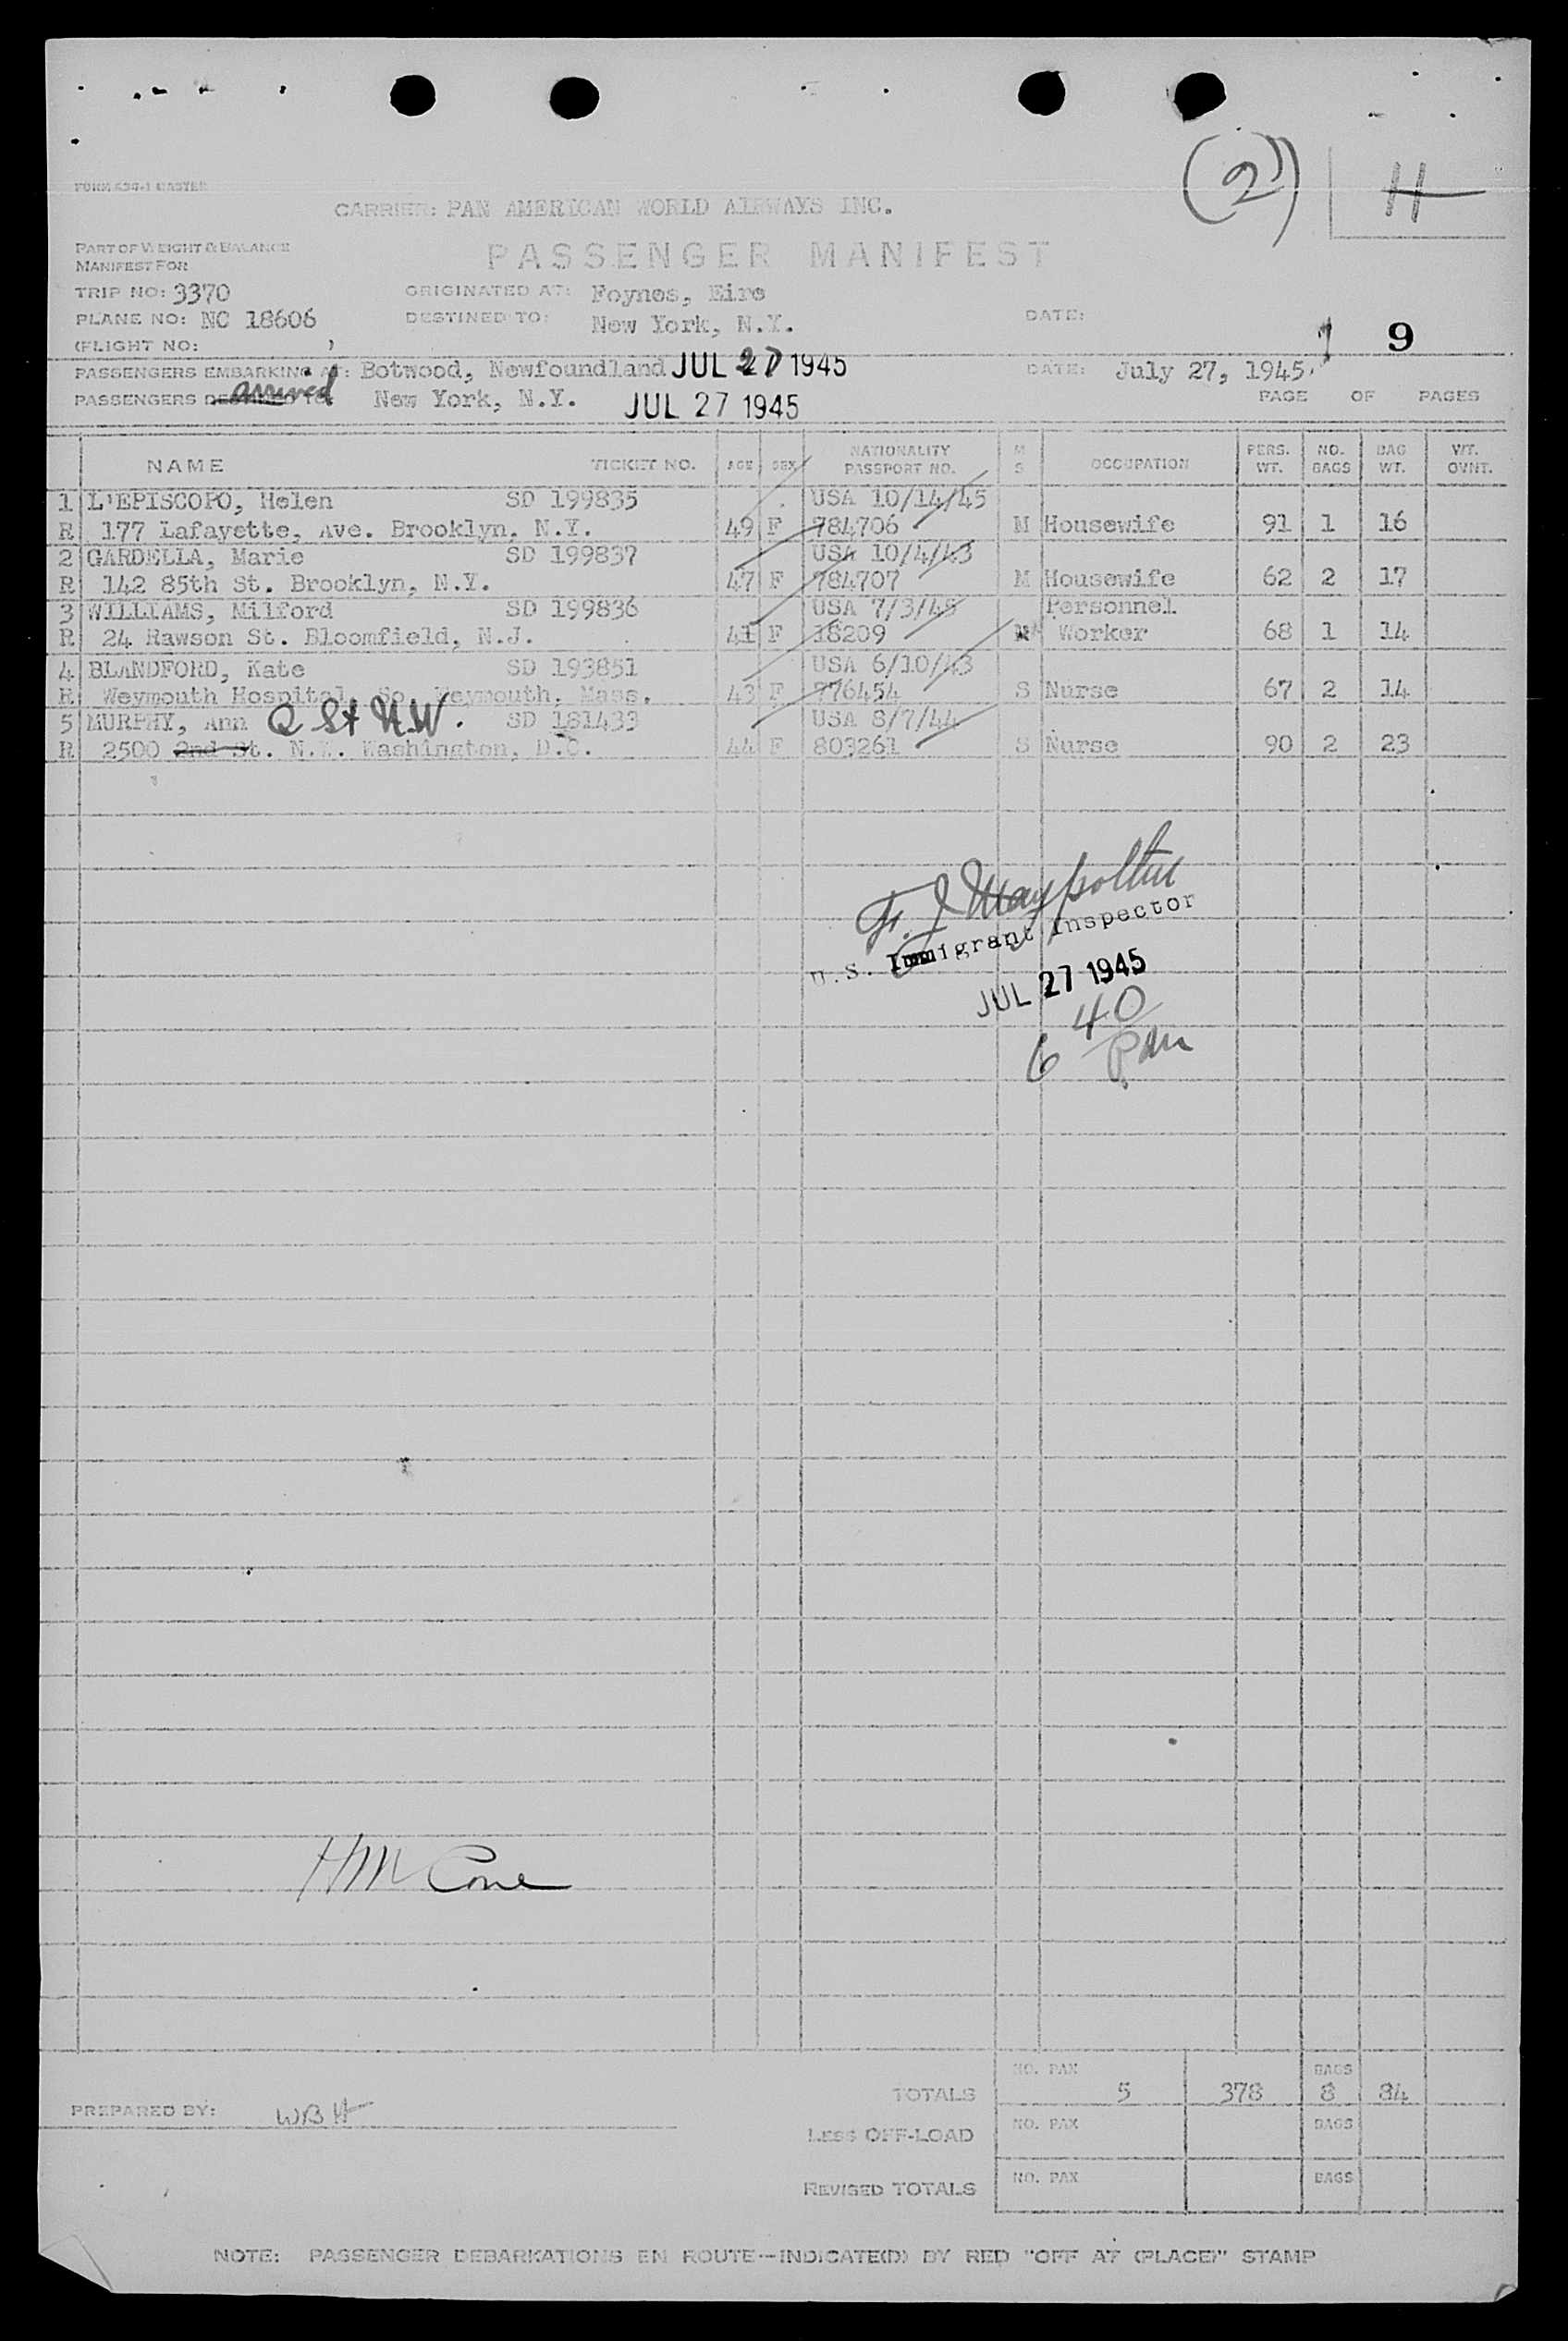 (2) H
FORM 434-1 MASTER
CARRIER: PAN AMERICAN WORLD AIRWAYS INC.
PART OF WEIGHT & BALANCE
MANIFEST FOR
PASSENGER MANIFEST
TRIP NO: 3370 ORIGINATED AT: Foynes, Eire
PLANE NO: NC 18606 DESTINED TO: New York, N.Y. DATE:
(FLIGHT NO: ) 9
PASSENGERS EMBARKING AT: Botwood, Newfoundland JUL 27 1945 DATE: July 27, 1945.
PASSENGERS arrived New York, N.Y. JUL 27 1945 PAGE OF PAGES
NAME TICKET NO. AGE SEX NATIONALITY PASSPORT NO. M S OCCUPATION PERS. WT. NO. BAGS BAG WT. WT. OVNT.
1 L'EPISCOPO, Helen SD 199835 USA 10/14/45
R 177 Lafayette, Ave. Brooklyn, N.Y. 49 F 784706 M Housewife 91 1 16
2 GARDELLA, Marie SD 199837 USA 10/4/43
R 142 85th St. Brooklyn, N.Y. 47 F 784707 M Housewife 62 2 17
3 WILLIAMS, Milford SD 199836 USA 7/3/48 Personnel
R 24 Rawson St. Bloomfield, N.J. 41 F 18209 Worker 68 1 14
4 BLANDFORD, Kate SD 193851 USA 6/10/43
R Weymouth Hospital, So. Weymouth, Mass. 43 F 776454 S Nurse 67 2 14
5 MURPHY, Ann Q St N.W. SD 181433 USA 8/7/44
R 2500 2nd St. N.W. Washington, D.C. 44 F 803261 S Nurse 90 2 23
F. J.
U.S. Immigrant Inspector
JUL 27 1945
6 40 PM
H M Cone
NO. PAX BAGS
TOTALS 5 378 8 84
PREPARED BY: WBH
NO. PAX BAGS
LESS OFF-LOAD
NO. PAX BAGS
REVISED TOTALS
NOTE: PASSENGER DEBARKATIONS EN ROUTE--INDICATE(D) BY RED "OFF AT (PLACE)" STAMP